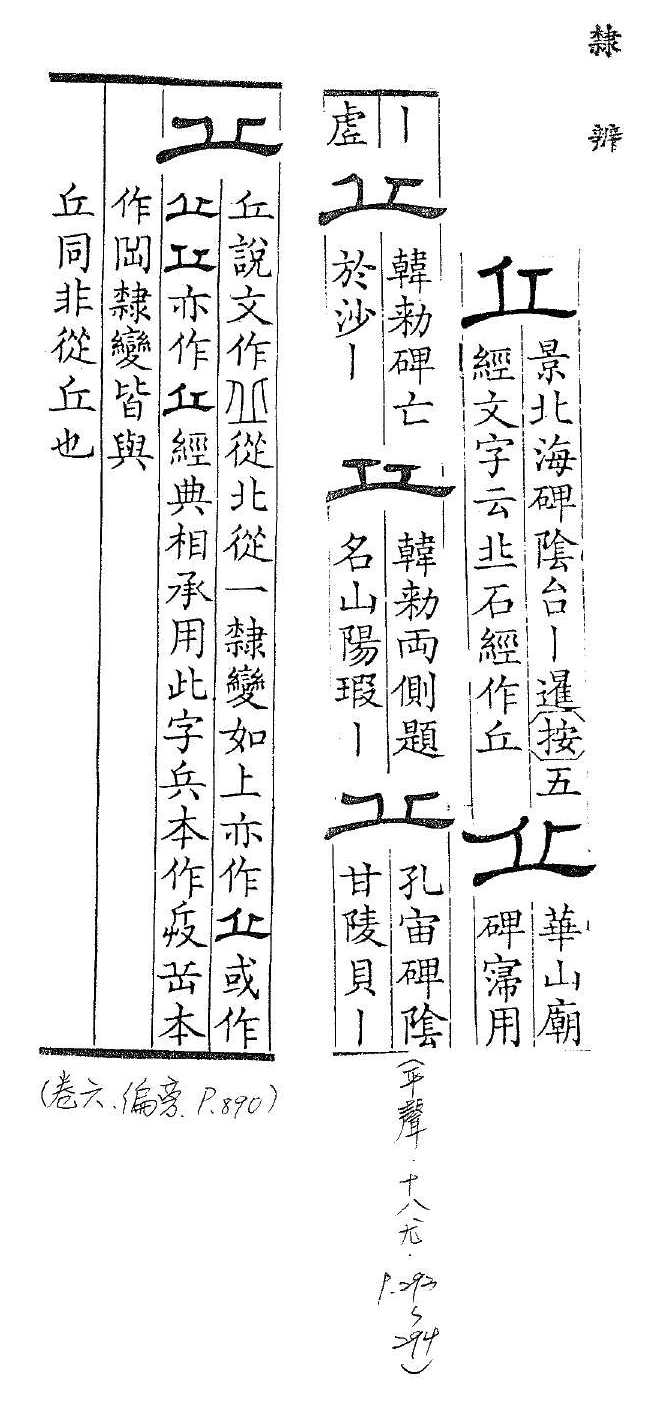 隸辨
丘
景北海碑陰台丨暹按五
經文字云丠石經作丘
丘
華山廟
碑用
丨
虛
丘
韓勑碑亡
於沙丨
丘
韓勑兩側題
名山陽瑕丨
丘
孔宙碑陰
甘陵貝丨
(平聲.十八尤.P.293~294)
丘
丘說文作从北從一隸變如上亦作丘或作
亦作經典相承用此字兵本作岳本
作隸變皆與
丘同非從丘也
(卷六.偏旁.P.890)